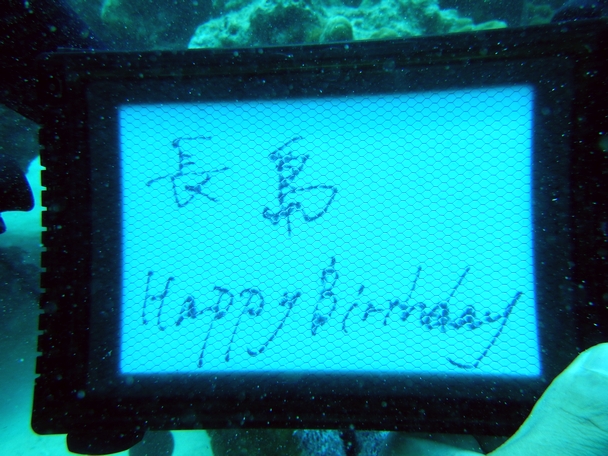 長島
Happy Birthday